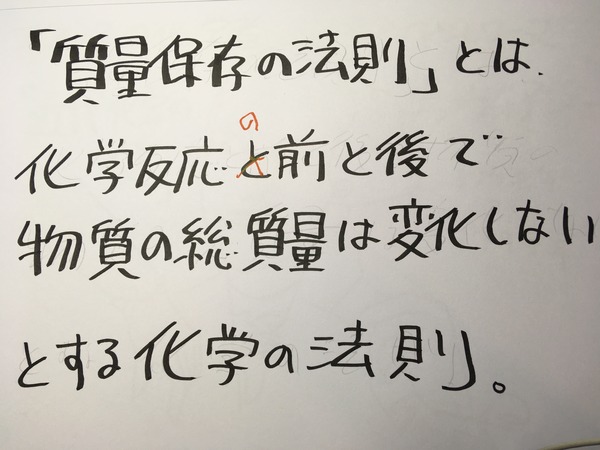 「質量保存の法則」とは、
化学反応の前と後で
物質の総質量は変化しない
とする化学の法則」。